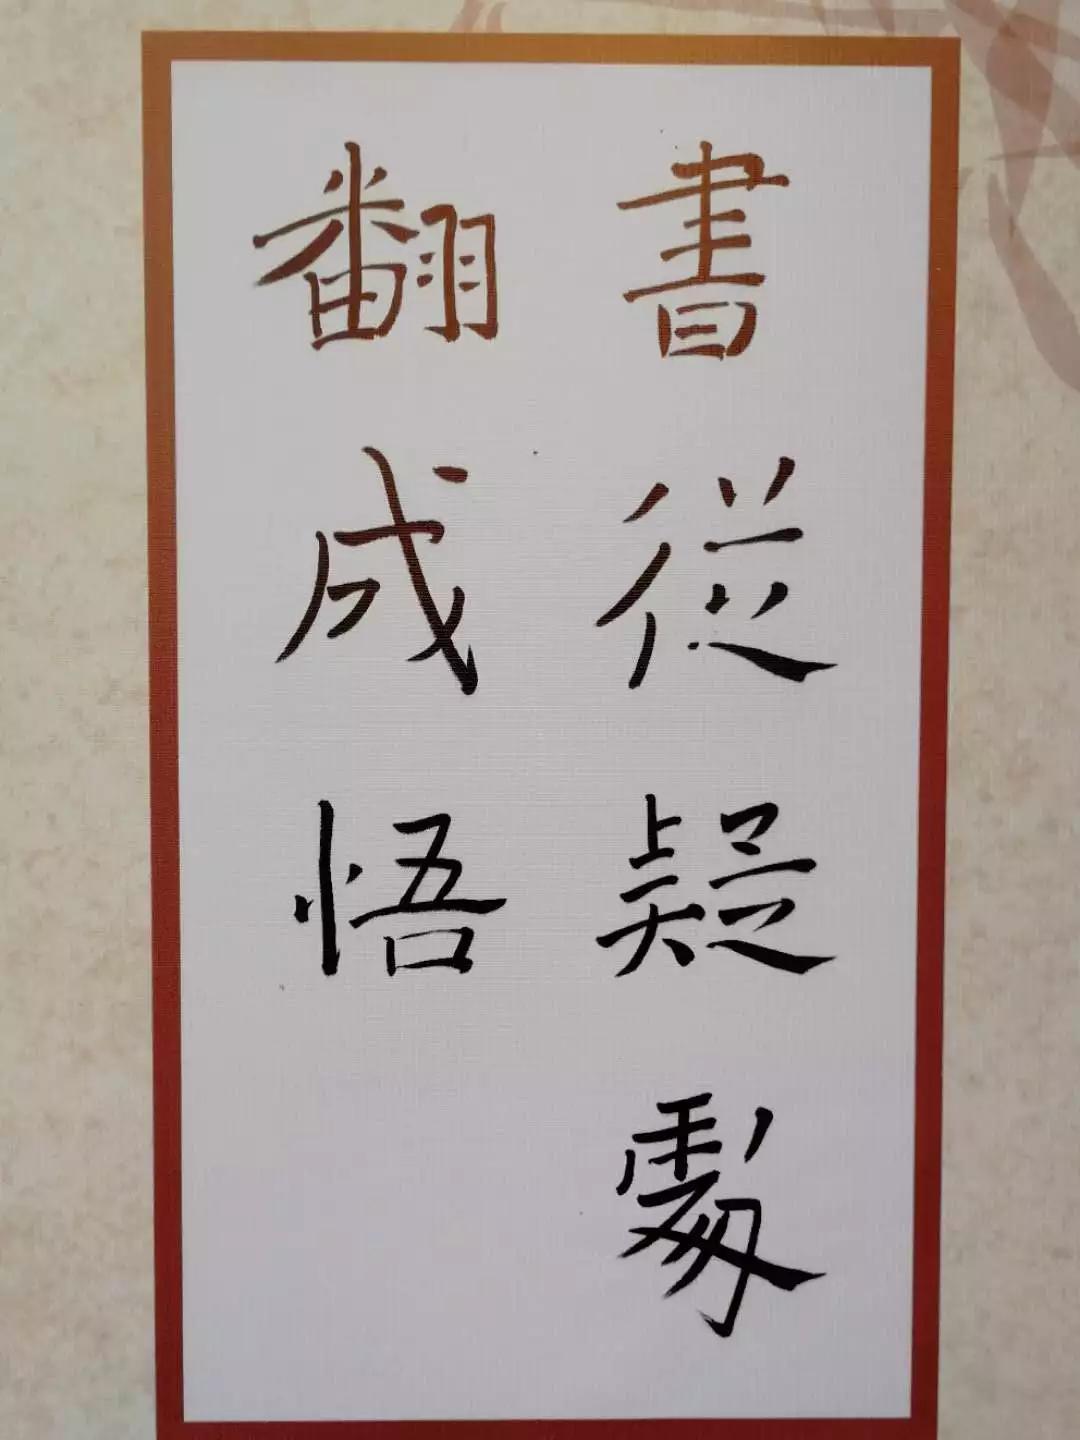 書從疑處
翻成悟